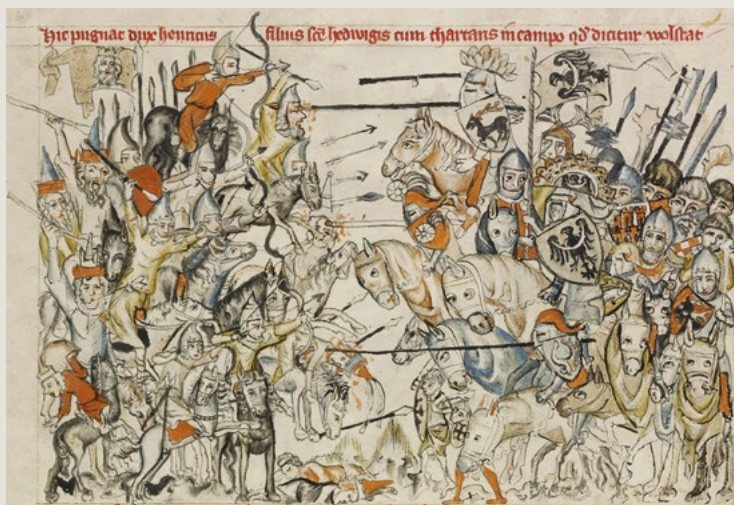 Hic pugnat dux henricus filius scē hedwigis cum thartaris in campo qd dicitur wolstat